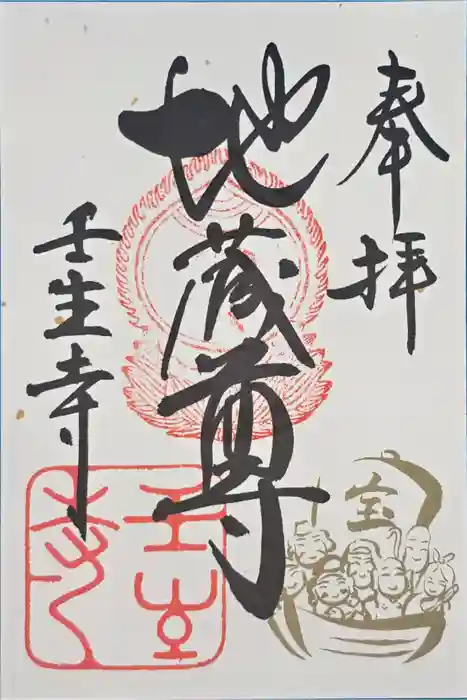 奉拝
地蔵尊
壬生寺
宝